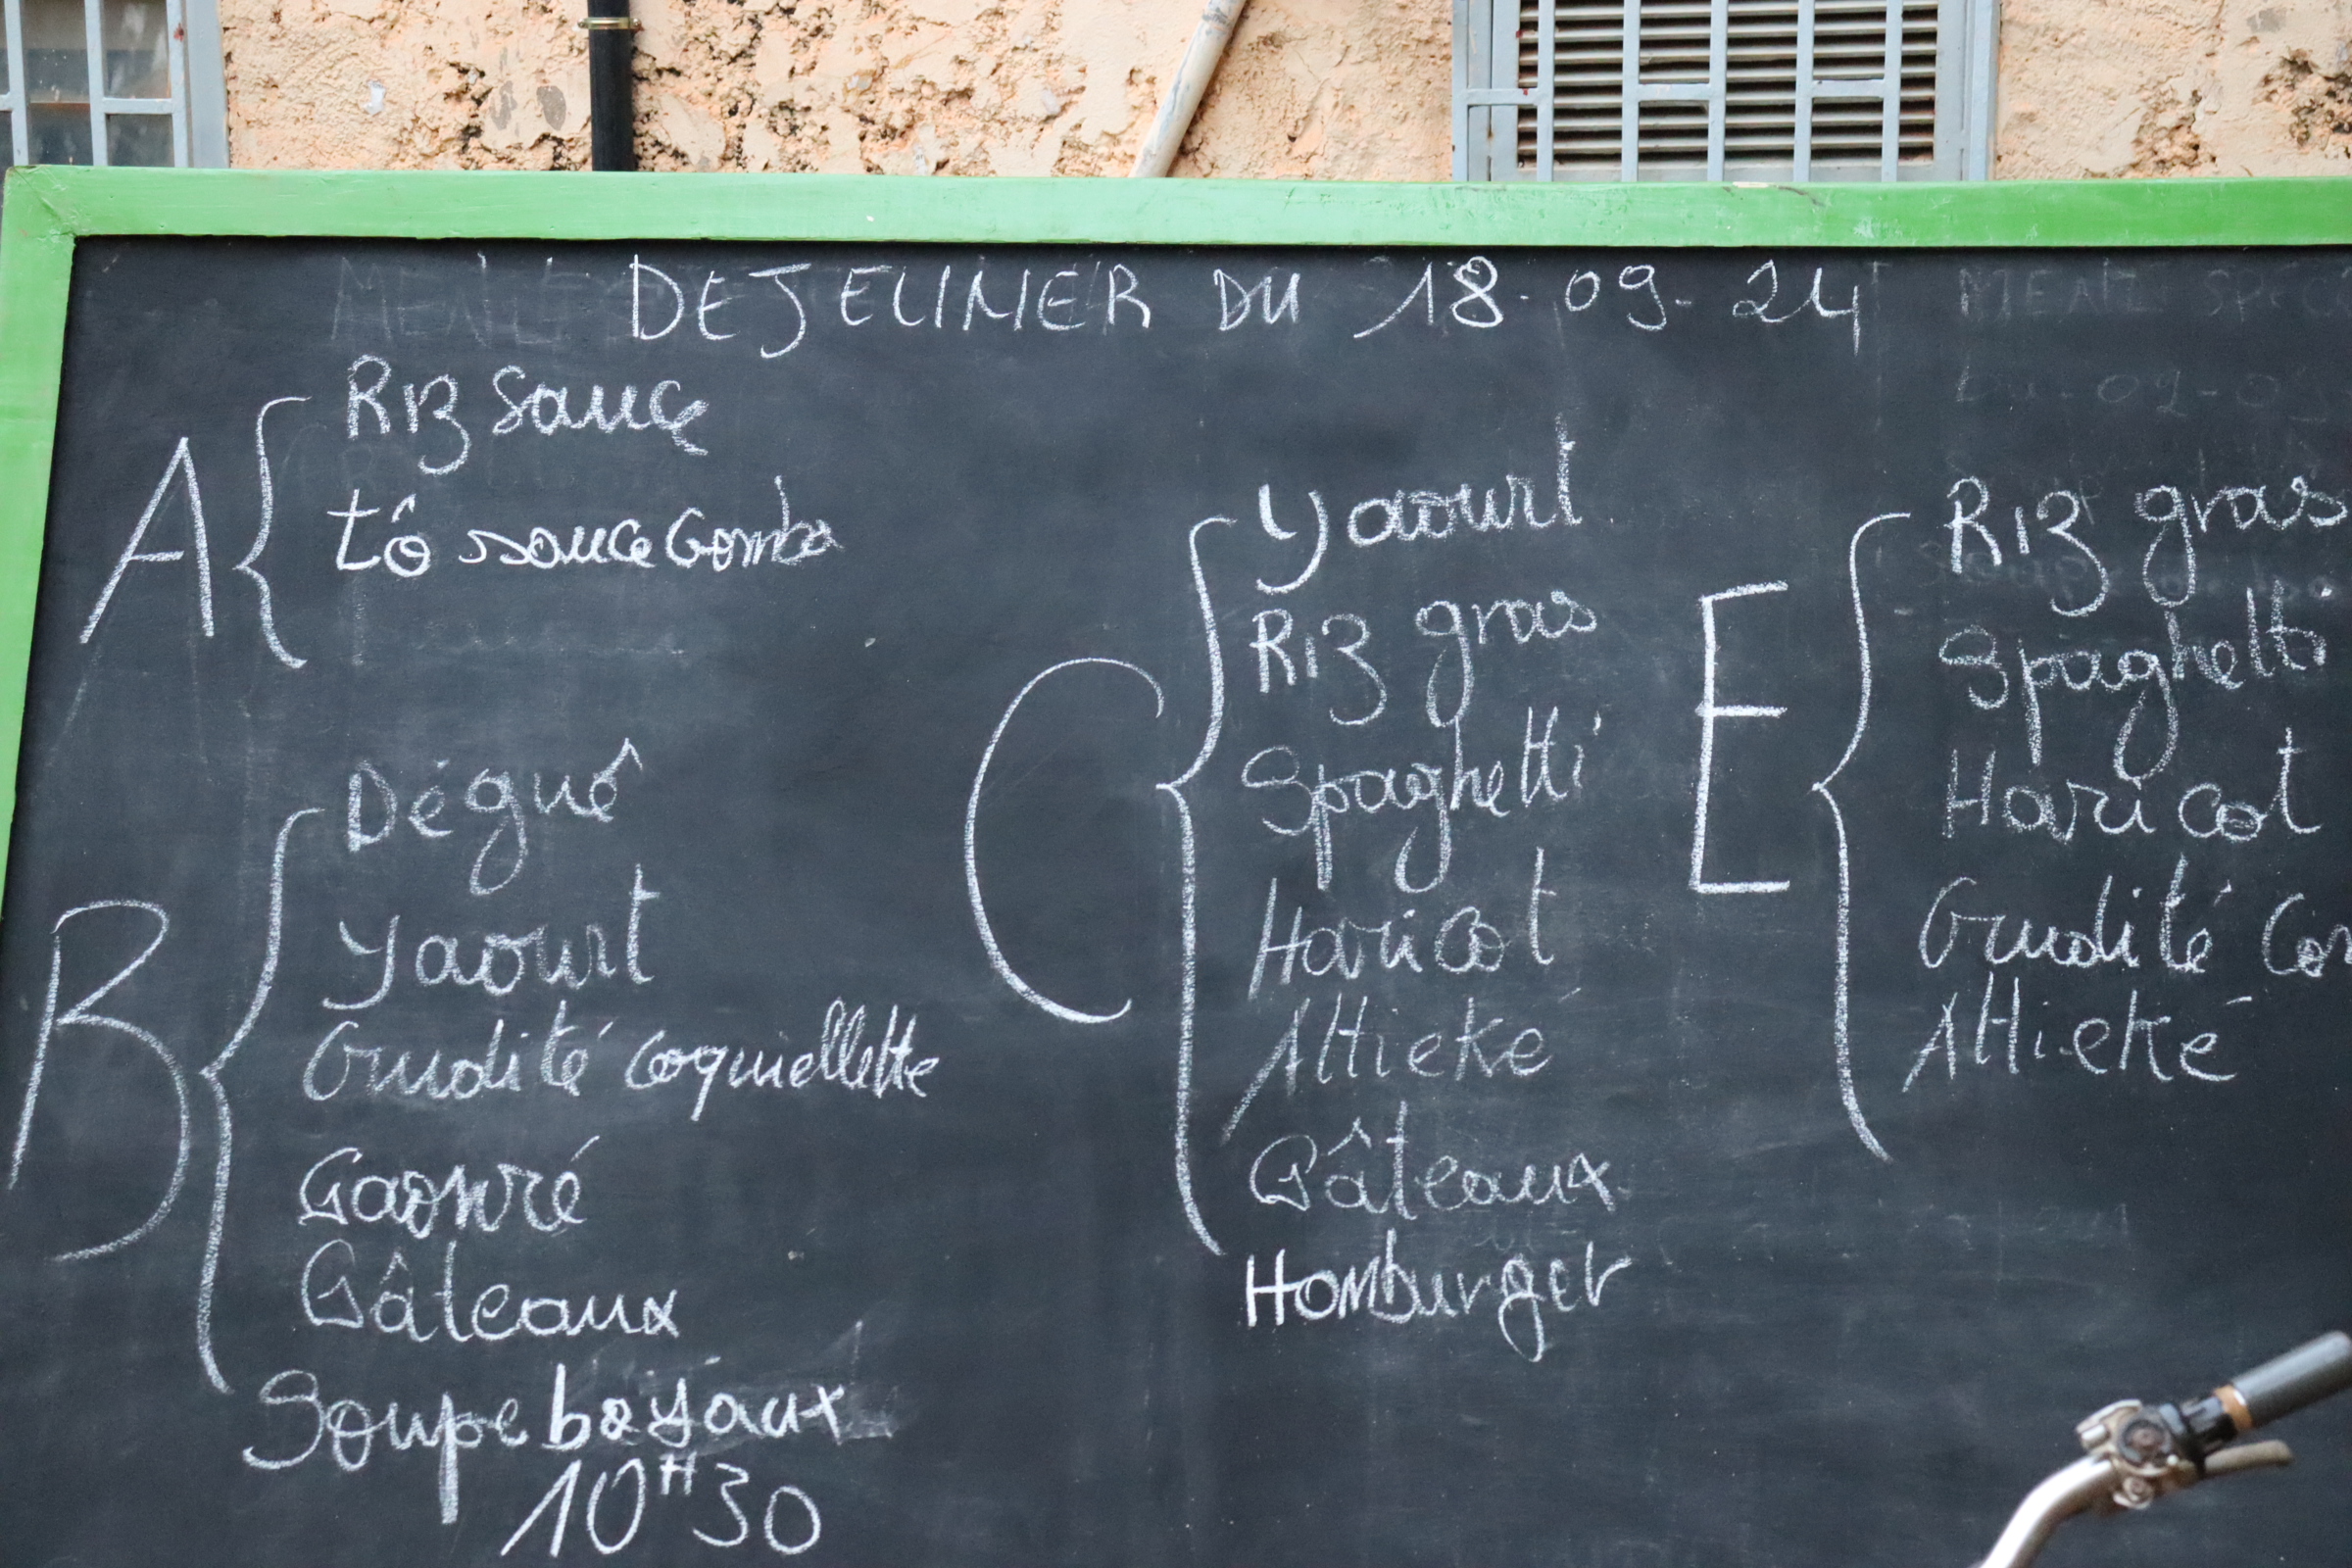 DEJEUNER DU 18-09-24
A
Riz sauce
Tô sauce Gombo
B
Dégué
Yaourt
Crudité coquiellette
Gaonré
Gâteaux
Soupe boyaux
10H30
C
Yaourt
Riz gras
Spaghetti
Haricot
Attieké
Gâteaux
Homburger
E
Riz gras
Spaghetti
Haricot
Crudité Con
Attieké